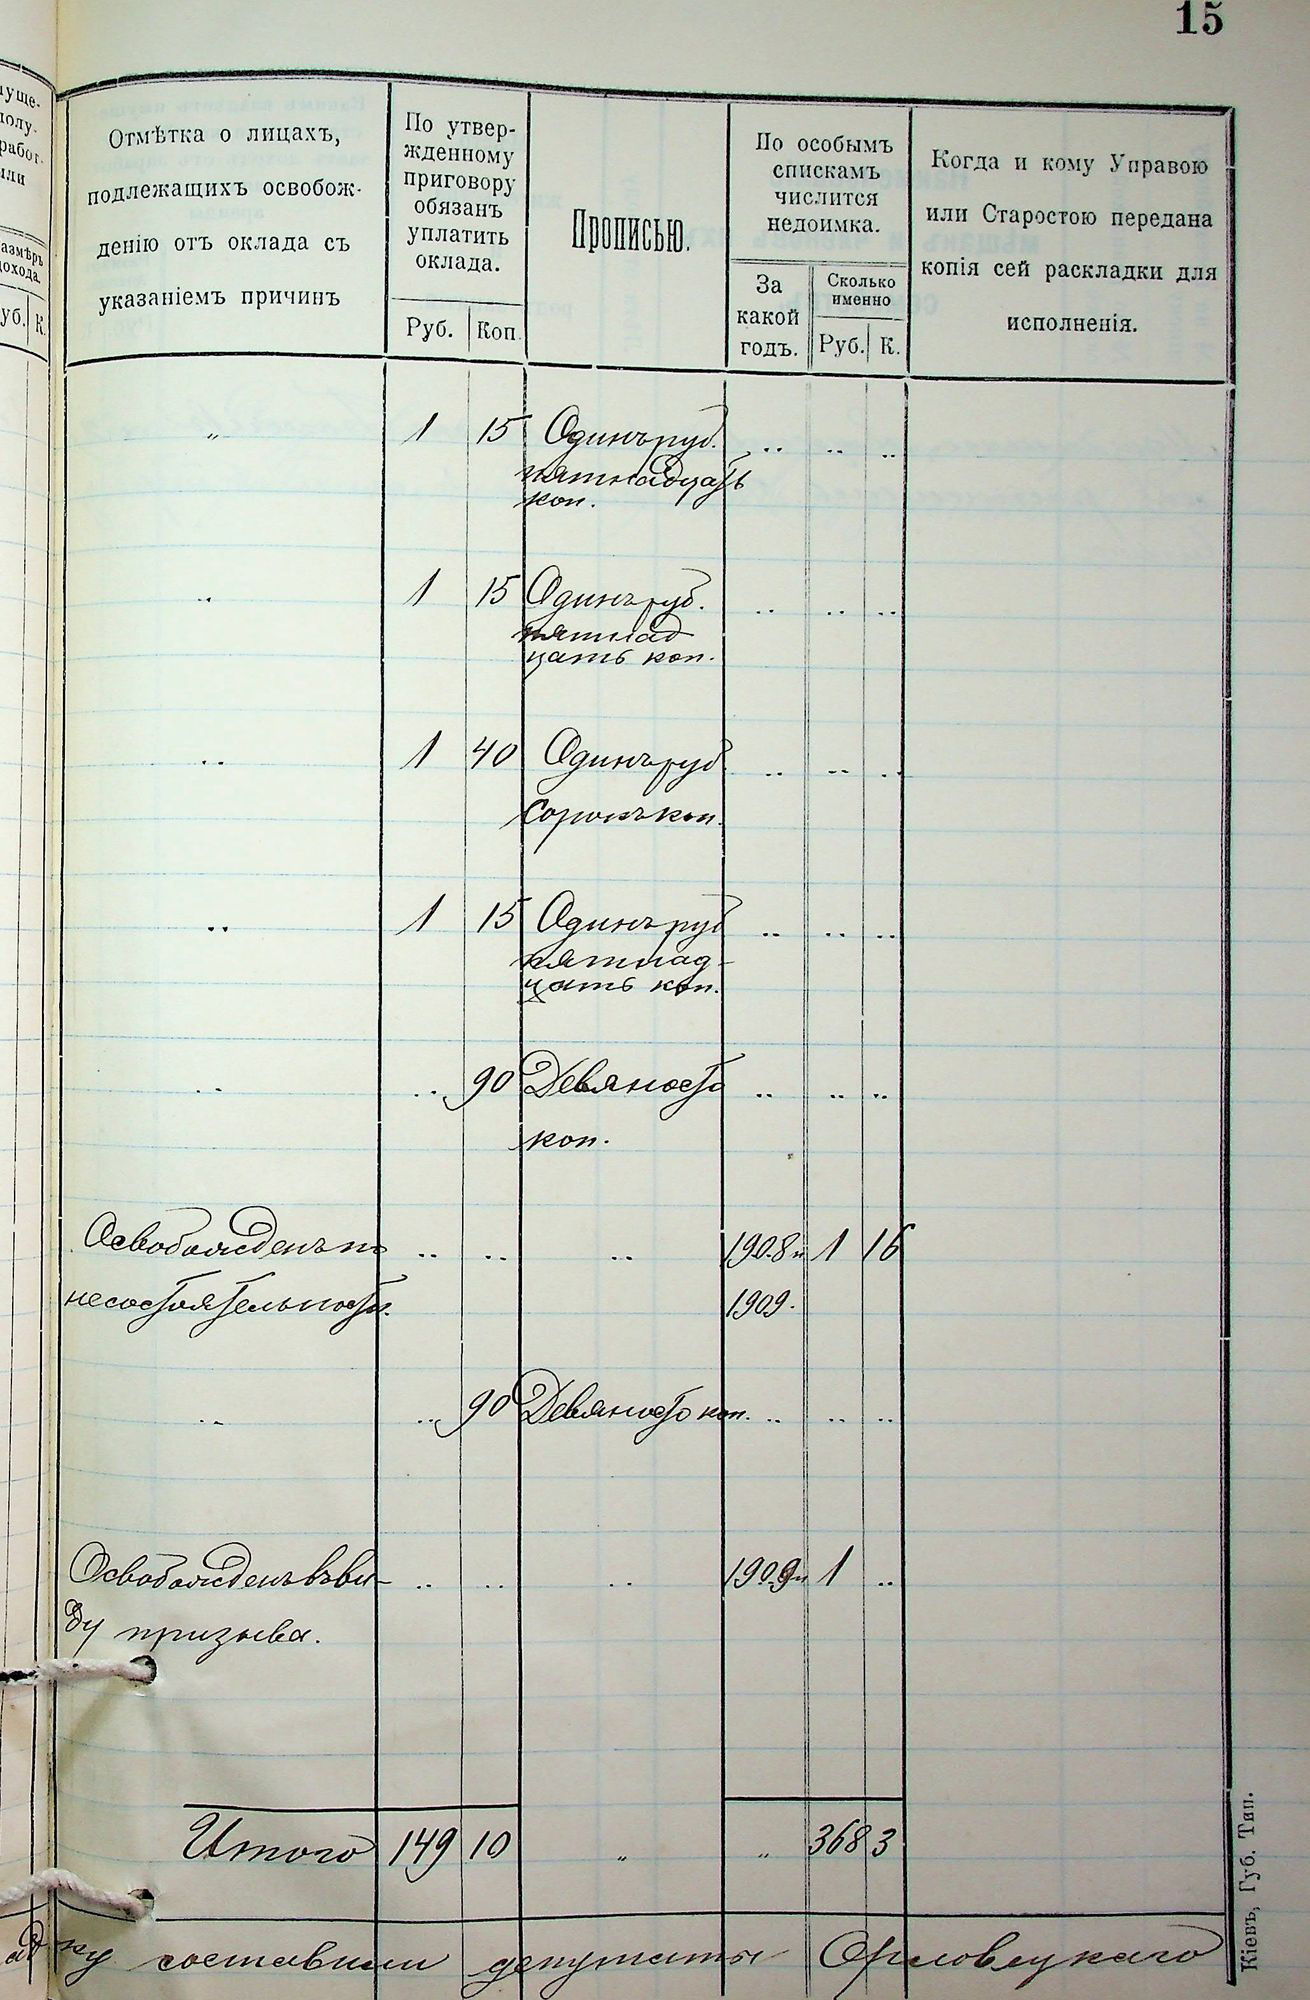 15
Отмѣтка о лицахъ,
подлежащихъ освобож-
денію отъ оклада съ
указаніемъ причинъ
По утвер-
жденному
приговору
обязанъ
уплатить
оклада.
Руб. Коп.
Прописью.
По особымъ
спискамъ
числится
недоимка.
За
какой
годъ.
Сколько
именно
Руб. К.
Когда и кому Управою
или Старостою передана
копія сей раскладки для
исполненія.
„ 1 15 Одинъ руб. .. .. ..
пятнадцать
коп.
.. 1 15 Одинъ руб. .. .. ..
пятнад
цать коп.
.. 1 40 Одинъ руб .. .. ..
сорокъ коп.
.. 1 15 Одинъ руб .. .. ..
пятнад-
цать коп.
.. .. 90 Девяносто .. .. ..
коп.
Освобожденъ по .. .. .. 1908 и 1 16
несостоятельности. 1909.
.. .. 90 Девяносто коп. .. .. ..
Освобожденъ въ ви- .. .. .. 1909 1 ..
ду призыва.
Итого 149 10 „ „ 368 3
ку составили депутаты Орловецкаго
Кіевъ, Губ. Тип.